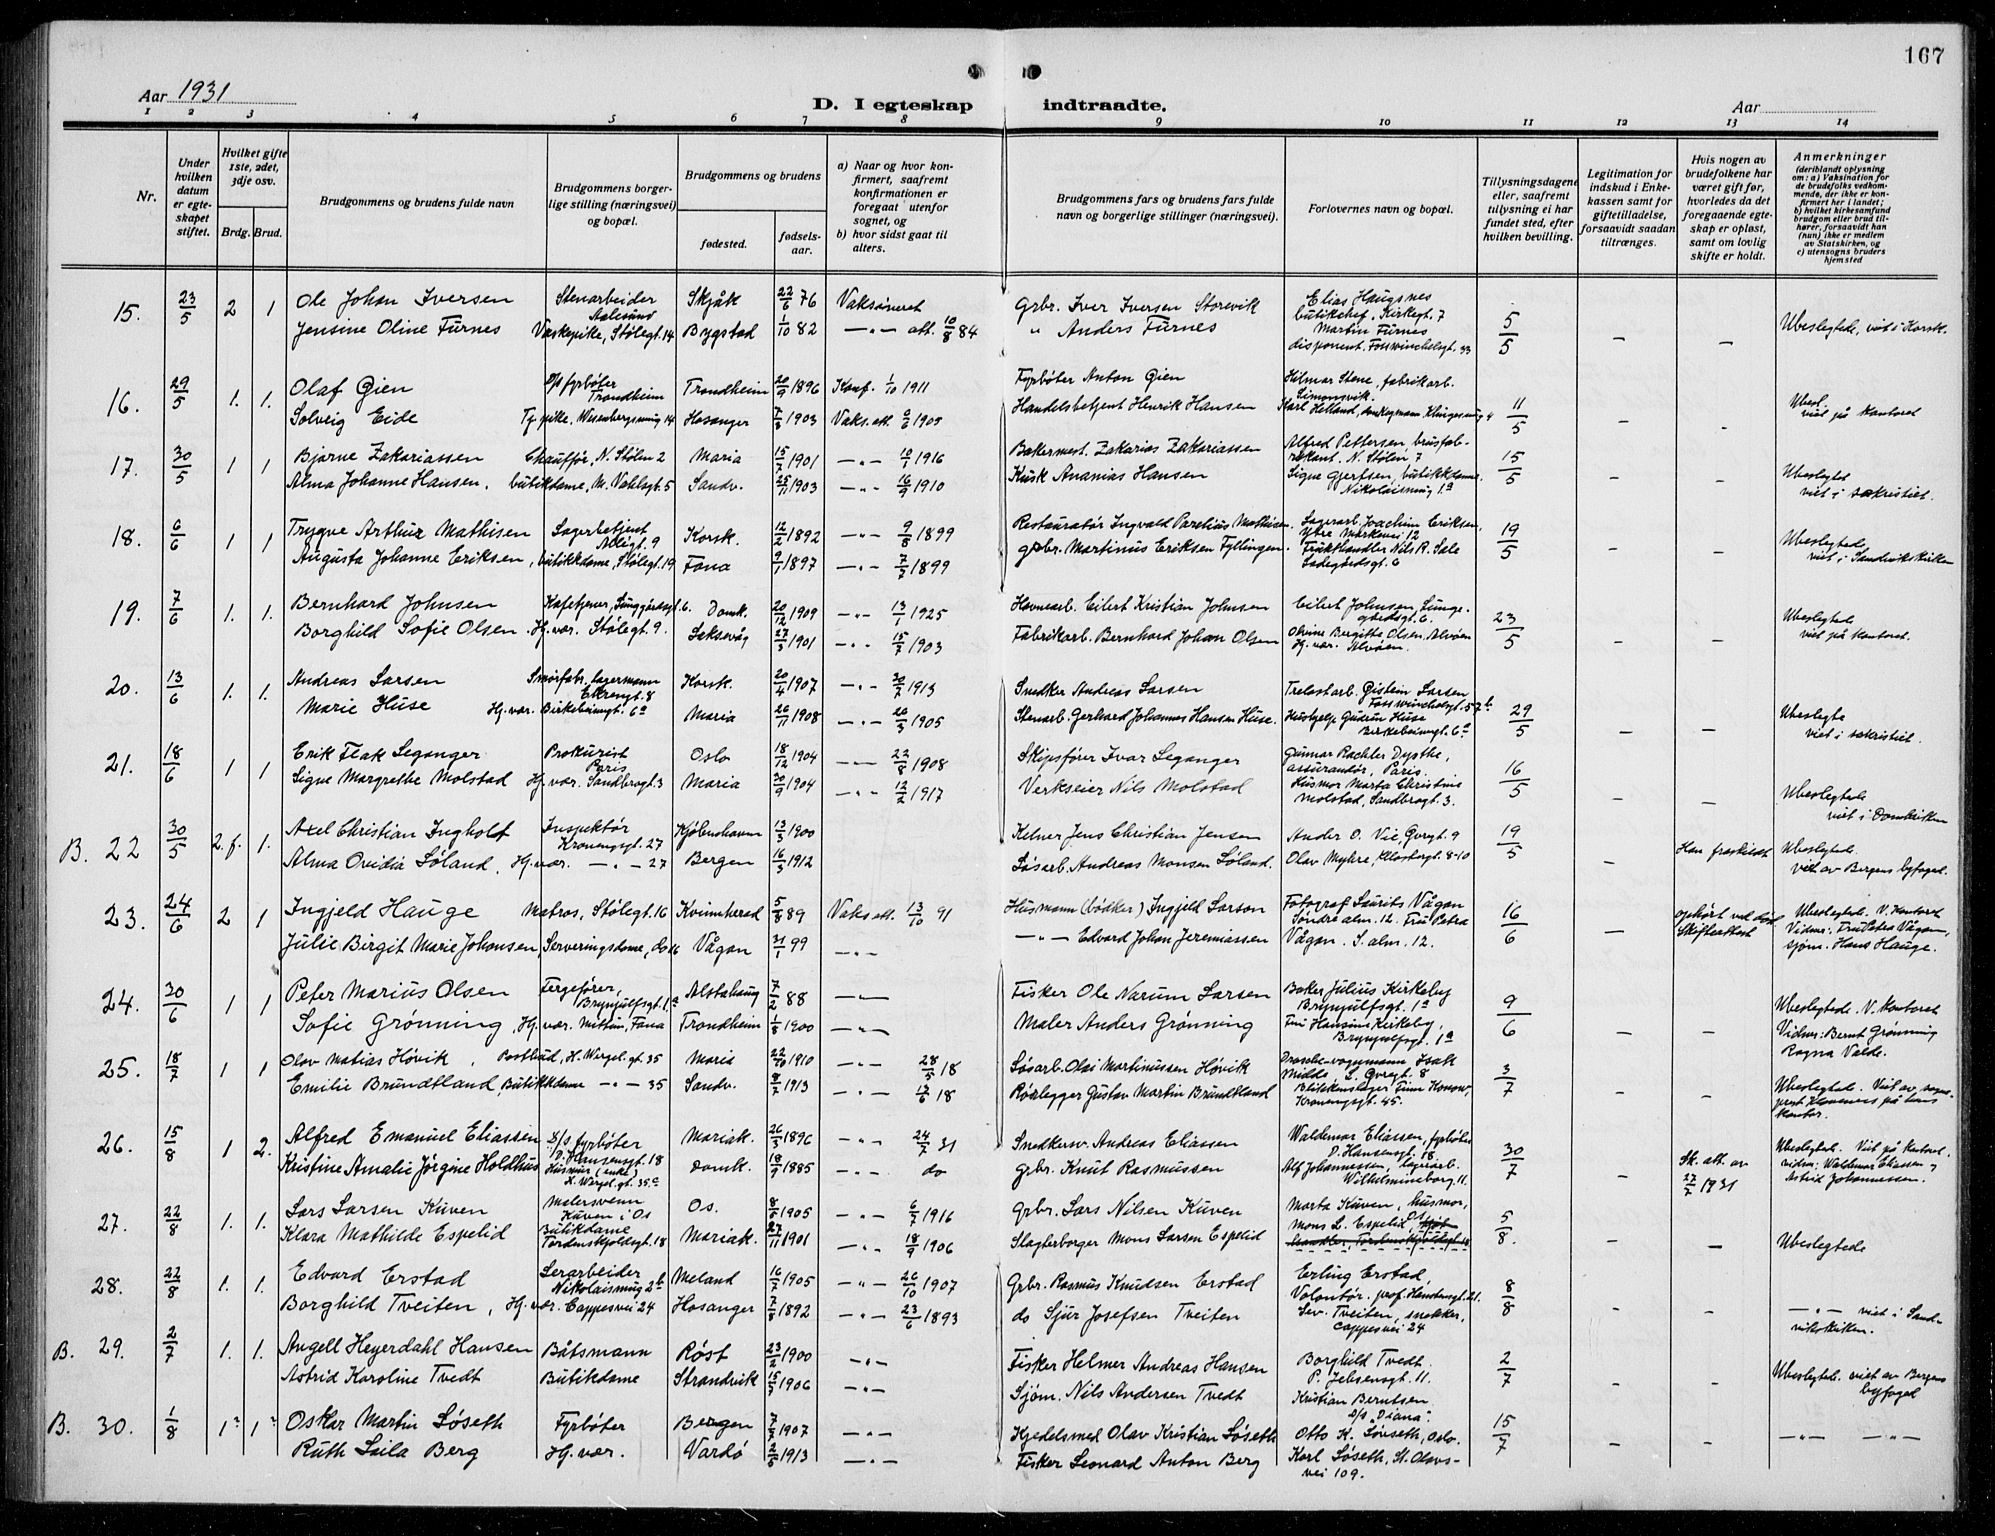 167
Aar 1931
D. I egteskap indtraadte.
Aar
1 2 3 4 5 6 7 8 9 10 11 12 13 14
Nr.
Under hvilken datum er egteskapet stiftet.
Hvilket gifte 1ste, 2det, 3dje osv.
Brdg. Brud.
Brudgommens og brudens fulde navn
Brudgommens borgerlige stilling (næringsvei) og bopæl.
Brudgommens og brudens
fødested.
fødselsaar.
a) Naar og hvor konfirmert, saafremt konfirmationen er foregaat utenfor sognet, og
b) hvor sidst gaat til alters.
Brudgommens fars og brudens fars fulde navn og borgerlige stillinger (næringsvei).
Forlovernes navn og bopæl.
Tillysningsdagene eller, saafremt tillysning ei har fundet sted, efter hvilken bevilling.
Legitimation for indskud i Enkekassen samt for giftetilladelse, forsaavidt saadan tiltrænges.
Hvis nogen av brudefolkene har været gift før, hvorledes da det foregaaende egteskap er opløst, samt om lovlig skifte er holdt.
Anmerkninger (deriblandt oplysning om: a) Vaksination for de brudefolks vedkommende, der ikke er konfirmert her i landet; b) hvilket kirkesamfund brudgom eller brud tilhører, forsaavidt han (hun) ikke er medlem av Statskirken, og c) utensogns bruders hjemsted
15. 23/5 2 1 Ole Johan Iversen Stenarbeider Aalesund Skjåk 22/6 76 Vaksineret Grbr. Iver Iversen Storevik Elias Haugsnes butikchef, Kirkegt. 7 5/5 – – Ubeslegtede, viet i Korsk.
Jensine Oline Furnes Vaskepike, Stølegt. 14 Bygstad 1/10 82 —"— att. 10/8 84 " Anders Furnes Martin Furnes disponent, Fosswinckelsgt. 33
16. 29/5 1. 1. Olaf Gien D/s fyrbøter Trondheim Trondheim 20/9 1896 Konf. 1/10 1911 Fyrbøter Anton Gien Hilmar Stene, fabrikarb. Simonsvik. 11/5 – – Ubesl. viet på kontoret
Solveig Eide Ty.pike, Wesenbergsmug 14 Hosanger 7/8 1903 Vaks. att. 6/6 1905 Handelsbetjent Henrik Hansen Karl Helland,
17. 30/5 1 1 Bjarne Zakariassen Chauffør, N. Stølen 2 Maria 15/7 1901 —"— 10/1 1916 Bakermest. Zakarias Zakariassen Alfred Pettersen, brusfabrikant. N. Stølen 7 15/5 – – Ubeslegtet viet i sakristiet.
Alma Johanne Hansen, butikdame, M. Vahlsgt. 5 Sandv. 25/11 1903 —"— 16/9 1910 Kusk Ananias Hansen Signe Gjertsen, butikkdame. Nikolaismug 1.a
18. 6/6 1 1 Trygve Arthur Mathisen Lagerbetjent Allégt. 9 Korsk. 12/2 1892 —"— 9/8 1899 Restauratør Ingvald Parelius Mathisen. Lagerarb. Joachim Eriksen, Ytre Markevei 12 19/5 – – Ubeslegtede viet i Sandvikskirken
Augusta Johanne Eriksen, butikkdame, Stølegt. 19 Fana 9/1 1897 —"— 7/7 1899 gbr. Martinus Eriksen Fyllingen. Frukthandler Nils R. Sale Ladegårdsgt. 6
19. 7/6 1. 1. Bernhard Johnsen Kafetjener, Lunggårdsgt. 6. Domk. 20/12 1909 —"— 13/1 1925 Havnearb. Eilert Kristian Johnsen Eilert Johnsen, Lungegårdsgt. 6. 23/5 – – Ubeslegtede viet på kontoret.
Borghild Sofie Olsen. Hj.vær. Stølegt. 9. Laksevåg 27/3 1901 —"— 15/7 1903 Fabrikarb. Bernhard Johan Olsen Olvine Bergitte Olsen, Alvøen Hj. vær. Alvøen.
20. 13/6 1. 1. Andreas Larsen Smørfabr. lagermann Ekrengt. 8 Korsk. 20/4 1907 —"— 20/7 1913 Snedker Andreas Larsen Trelastarb. Gistein Larsen Fosswinckelsgt. 57b 29/5 – – Ubeslegte viet i sakristiet.
Marie Huse Hj.vær. Birkebeinergt. 6a Maria 26/11 1908 —"— 26/3 1905 Stenarb. Gerhard Johannes Hansen Huse. Hushjelp Gudrun Huse Birkebeinergt. 6a
21. 18/6 1 1 Erik Fleak Leganger Prokurist Paris Oslo 18/12 1904 —"— 22/8 1908 Skipsfører Ivar Leganger Gunnar Rachler Dypthe, assurandør, Paris. 16/5 – – Ubeslegtede viet i Domkirken
Signe Margrethe Molstad Hj. vær. Sandbrogt. 3 Maria 30/9 1904 —"— 12/2 1917 Verkseier Nils Molstad Husmor Marta Christine Molstad, Sandbrogt. 3.
B. 22 30/5 2.f. 1. Axel Christian Ingholf Inspektør Kroneng.gt. 27 Kjøbenhavn 13/3 1900 Kelner Jens Christian Jensen Ander O. Vie, Gvregt. 9 19/5 – Han fraskildt Ubeslegtede. viet av Bergens byfoged.
Alma Ovidia Søland, Hj.vær. —"— 27 Bergen 16/3 1912 Løsarb. Andreas Monsen Søland. Olav Myhre, Klostergt. 8-10
23. 24/6 2 1 Ingjeld Hauge Matros, Stølegt. 16 Kvinnherad 5/8 89 Vaks att. 13/10 91 Husmann (bødker) Ingjeld Larson Fotograf Laurits Vågan Søndre alm. 12. Fru Petra 16/6 – ophørt ved død Skifteattest Ubeslegtede. V. Kontoret Vidner: Fru Petra Vågan, sjøm. Hans Hauge.
Julie Birgit Marie Johansen, Serveringsdame, do 16 Vågan 21/1 99 —"— —"— Edvard Johan Jeremiassen Vågan. S. alm. 12.
24. 30/6 1 1 Peter Marius Olsen Fergefører, Brynjulfsgt. 1a Alstahaug 7/2 88 —"— Fisker Ole Narum Larsen Baker Julius Kirkeby Brynjulfsgt. 1a 9/6 – – Ubeslegtede. V. Kontoret Vidner: Bernt Grønning Ragna Valde.
Sofie Grønning, Hj. vær. Mittun, Fana Trondheim 1/8 1900 —"— Maler Anders Grønning Fru Hansine Kirkeby, Brynjulfsgt. 1a
25. 18/7 1 1 Olav Matias Høvik, Postbud, H. Wergel.gt. 35 Maria 22/10 1910 —"— 28/5 18 Løsarb. Olai Martinussen Høvik Drosche-vognmann Isak Midds L. Gvregt. 8 3/7 – – Ubeslegtede. Viet av sogneprest Havnevik på hans kontor.
Emilie Brundtland, Butikkdame —"— 35 Sandv. 8/7 1913 —"— 13/6 18 Rørlegger Gustav Martin Brundtland Blikkenslager Finn Konow, Kronengsgt. 45.
26. 15/8 1 2. Alfred Emanuel Eliassen D/s fyrbøter D. Hansensgt. 18 Mariak. 26/3 1896 —"— 24/7 31 Snedkersv. Andreas Eliassen Waldemar Eliassen, fyrbøter D. Hansensgt. 18. 30/7 – Sk. att. av 27/7 1931 Ubeslegtede. Viet på kontoret. vidner: Waldemar Eliassen, Astrid Johannessen.
Kristine Amalie Jørgine Holdhus Husmor (enke) H. Wirgel.gt. 35a Domk. 18/9 1885 —"— do Grbr. Knut Rasmussen Alf Johannessen, lagerarb. Wilhelmineborg 11.
27. 22/8 1. 1. Lars Larsen Kuven Malersvenn Kuven i Os Os. 8/5 1905 —"— 6/7 1916 Grbr. Lars Nilsen Kuven Marta Kuven, husmor, Os 5/8. – – Ubeslegtede
Klara Mathilde Espelid Butikdame Tordenskjoldsgt. 18 Mariak. 27/11 1901 —"— 18/9 1906 Slagterborger Mons Larsen Espelid Mons L. Espelid, kjøthandler, Tordenskjoldsgt. 18
28. 22/8 1. 1. Edvard Erstad Lerarbeider Nikolaismug 2b Meland 16/7 1905 —"— 26/10 1907 Grbr. Rasmus Knudsen Erstad Erling Erstad, Volontør. prof. Hanstensgt. 21. 8/8 – – —"— viet i Sandvikskirken.
Borghild Tveiten, Hj. vær. Cappesvei 24 Hosanger 7/8 1892 —"— 23/6 1893 do Sjur Josefsen Tveiten Sev. Tveiten, snekker, Cappesvei 24
B. 29. 2/7 1. 1. Angell Heyerdahl Hansen Båtsmann Røst 23/2 1900 —"— Fisker Helmer Andreas Hansen Borghild Tvedt. P. Jebsensgt. 11. 2/7 – – Ubeslegtede. viet av Bergens byfoged
Astrid Karoline Tvedt Butikdame Strandvik 15/5 1906 —"— Sjøm. Nils Andersen Tvedt Kristian Berntsen D/s "Diana".
B. 30. 1/8 1? 1? Oskar Martin Søseth Fyrbøter Bergen 7/7 1907 —"— Kjedelsmed Olav Kristian Søseth Otto K. Søseth, Oslo. 15/7 – – —"— —"—
Ruth Laila Berg Hj. vær. Vardø 2/6 1913 —"— Fisker Leonard Anton Berg Karl Søseth, St. Olavsvei 109.